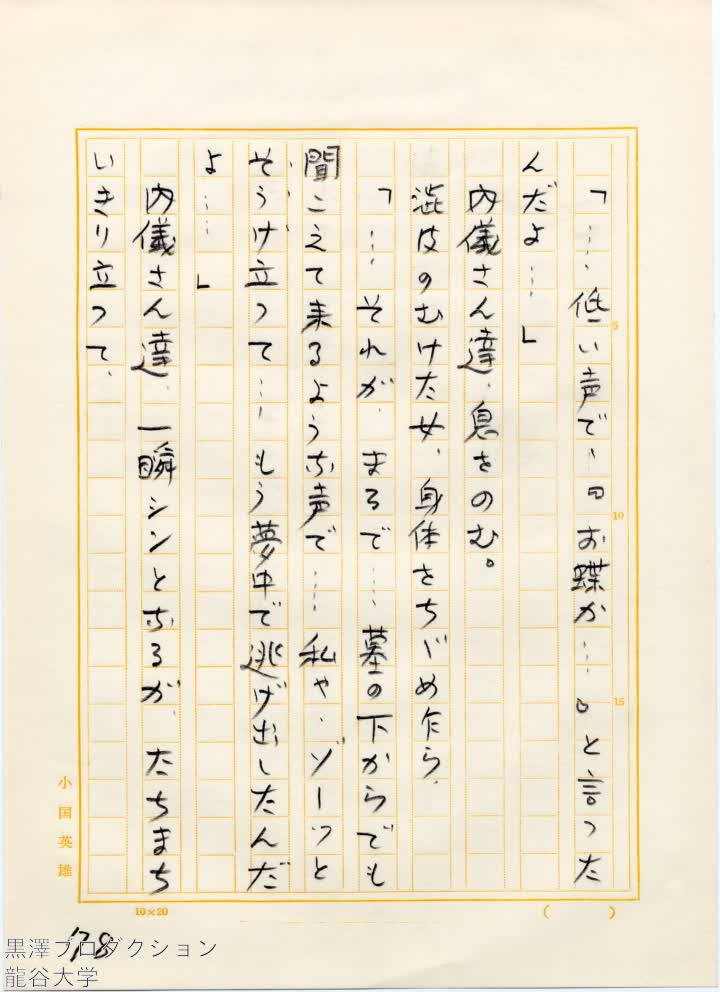 「…低い声で、『お蝶か…。』と言つた
んだよ…」
内儀さん達、息をのむ。
渋皮のむけた女、身体をちゞめ乍ら、
「…それが、まるで…墓の下からでも
聞こえて来るような声で…私や、ゾーッと
そうけ立つて…もう夢中で逃げ出したんだ
よ…」
内儀さん達、一瞬シンとなるが、たちまち
いきり立つて、
小国英雄
10×20
( )
5
10
15
178
黒澤プロダクション
龍谷大学